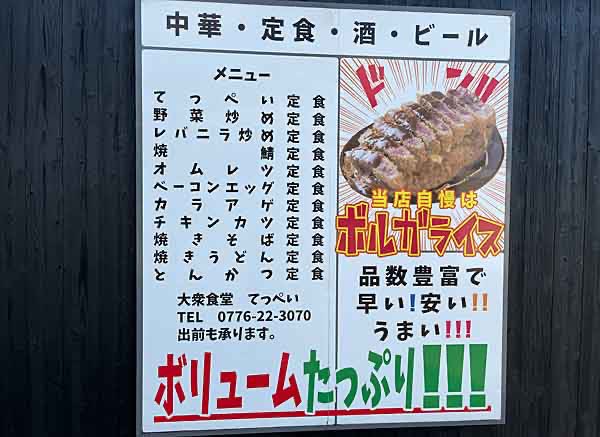 中華・定食・酒・ビール
メニュー
てっぺい定食
野菜炒め定食
レバニラ炒め定食
焼鯖定食
オムレツ定食
ベーコンエッグ定食
カラアゲ定食
チキンカツ定食
焼きそば定食
焼きうどん定食
とんかつ定食
大衆食堂 てっぺい
TEL 0776-22-3070
出前も承ります。
ドン!!
当店自慢は
ボルガライス
品数豊富で
早い!安い!!
うまい!!!
ボリュームたっぷり!!!